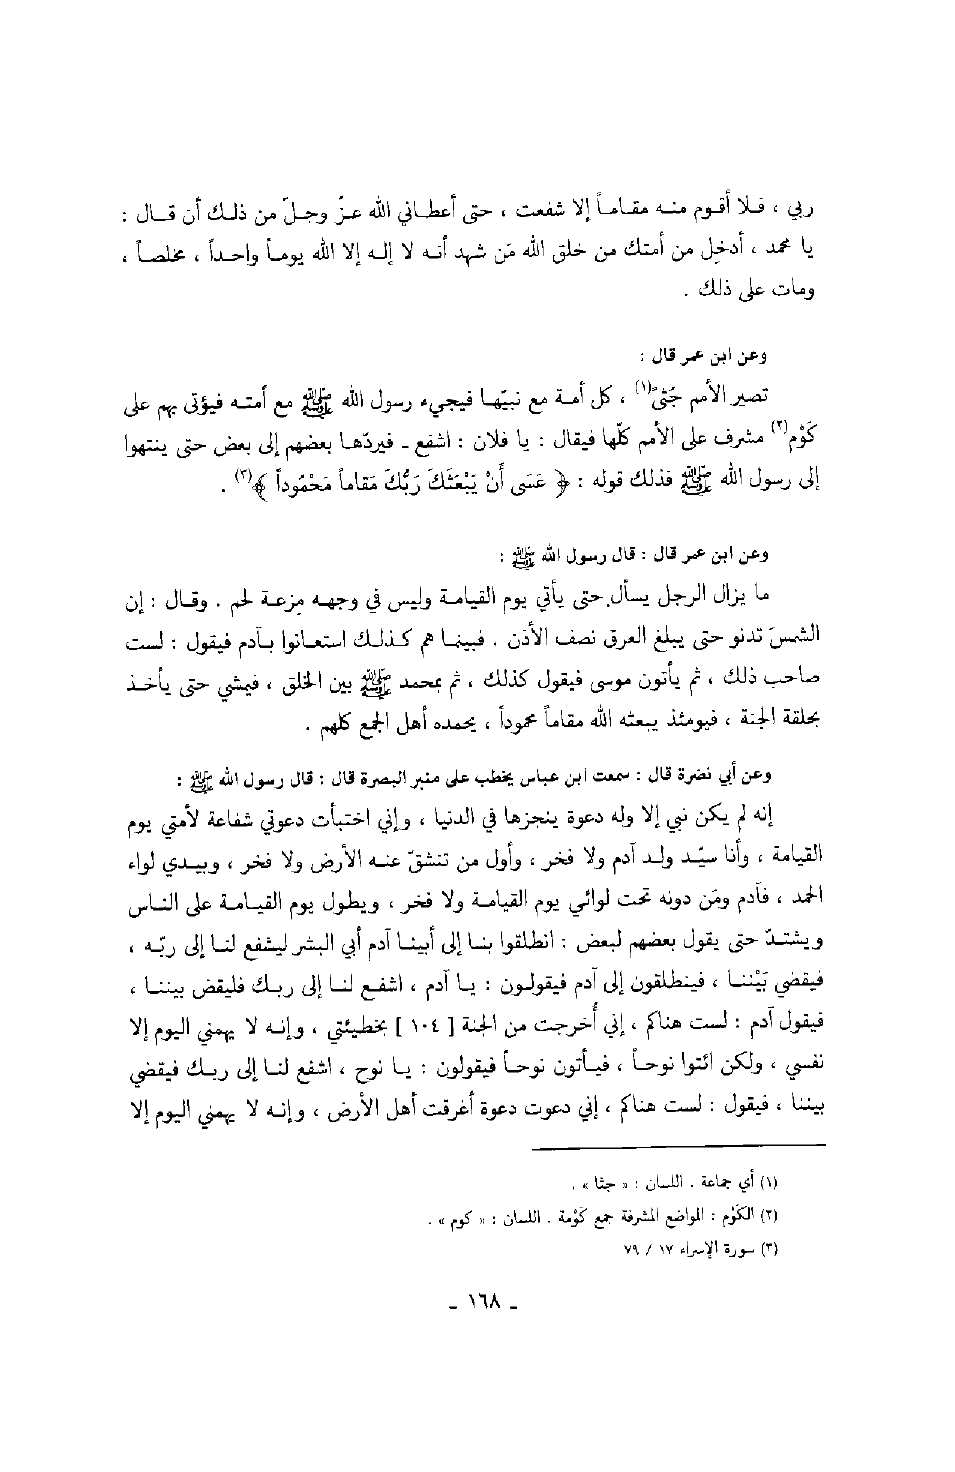 ربي ، فلا أقوم منه مقاماً إلا شفعت ، حتى أعطاني الله عزّ وجلّ من ذلك أن قال :
يا محمد ، أدخِل من أمتك من خلق الله مَن شهد أنه لا إله إلا الله يوماً واحداً ، مخلصاً ،
ومات على ذلك .
وعن ابن عمر قال :
تصير الأمم جُثىً(١) ، كل أمة مع نبيّها فيجيء رسول الله ﷺ مع أمته فيؤتى بهم على
كَوْم(٢) مشرف على الأمم كلّها فيقال : يا فلان : اشفع - فيردّها بعضهم إلى بعض حتى ينتهوا
إلى رسول الله ﷺ فذلك قوله : ﴿ عَسَى أَنْ يَبْعَثَكَ رَبُّكَ مَقاماً مَحْمُوداً ﴾(٣) .
وعن ابن عمر قال : قال رسول الله ﷺ :
ما يزال الرجل يسأل حتى يأتي يوم القيامة وليس في وجهه مزعة لحم . وقال : إن
الشمسَ تدنو حتى يبلغ العرق نصف الأذن . فبينما هم كذلك استعانوا بآدم فيقول : لست
صاحب ذلك ، ثم يأتون موسى فيقول كذلك ، ثم بمحمد ﷺ بين الخلق ، فيمشي حتى يأخذ
بحلقة الجنة ، فيومئذ يبعثه الله مقاماً محموداً ، يحمده أهل الجمع كلهم .
وعن أبي نضرة قال : سمعت ابن عباس يخطب على منبر البصرة قال : قال رسول الله ﷺ :
إنه لم يكن نبي إلا وله دعوة ينجزها في الدنيا ، وإني اختبأت دعوتي شفاعة لأمتي يوم
القيامة ، وأنا سيّد ولد آدم ولا فخر ، وأول من تنشقّ عنه الأرض ولا فخر ، وبيدي لواء
الحمد ، فآدم ومَن دونه تحت لوائي يوم القيامة ولا فخر ، ويطول يوم القيامة على الناس
ويشتدّ حتى يقول بعضهم لبعض : انطلقوا بنا إلى أبينا آدم أبي البشر ليشفع لنا إلى ربّه ،
فيقضي بَيْننا ، فينطلقون إلى آدم فيقولون : يا آدم ، اشفع لنا إلى ربك فليقض بيننا ،
فيقول آدم : لست هناكم ، إني أُخرجت من الجنة [ ١٠٤ ] بخطيئتي ، وإنه لا يهمني اليوم إلا
نفسي ، ولكن ائتوا نوحاً ، فيأتون نوحاً فيقولون : يا نوح ، اشفع لنا إلى ربك فيقضي
بيننا ، فيقول : لست هناكم ، إني دعوت دعوة أغرقت أهل الأرض ، وإنه لا يهمني اليوم إلا
(١) أي جماعة . اللسان : « جثا » .
(٢) الكَوْم : المواضع المشرفة جمع كَوْمة . اللسان : « كوم » .
(٣) سورة الإسراء ١٧ / ٧٩
- ١٦٨ -